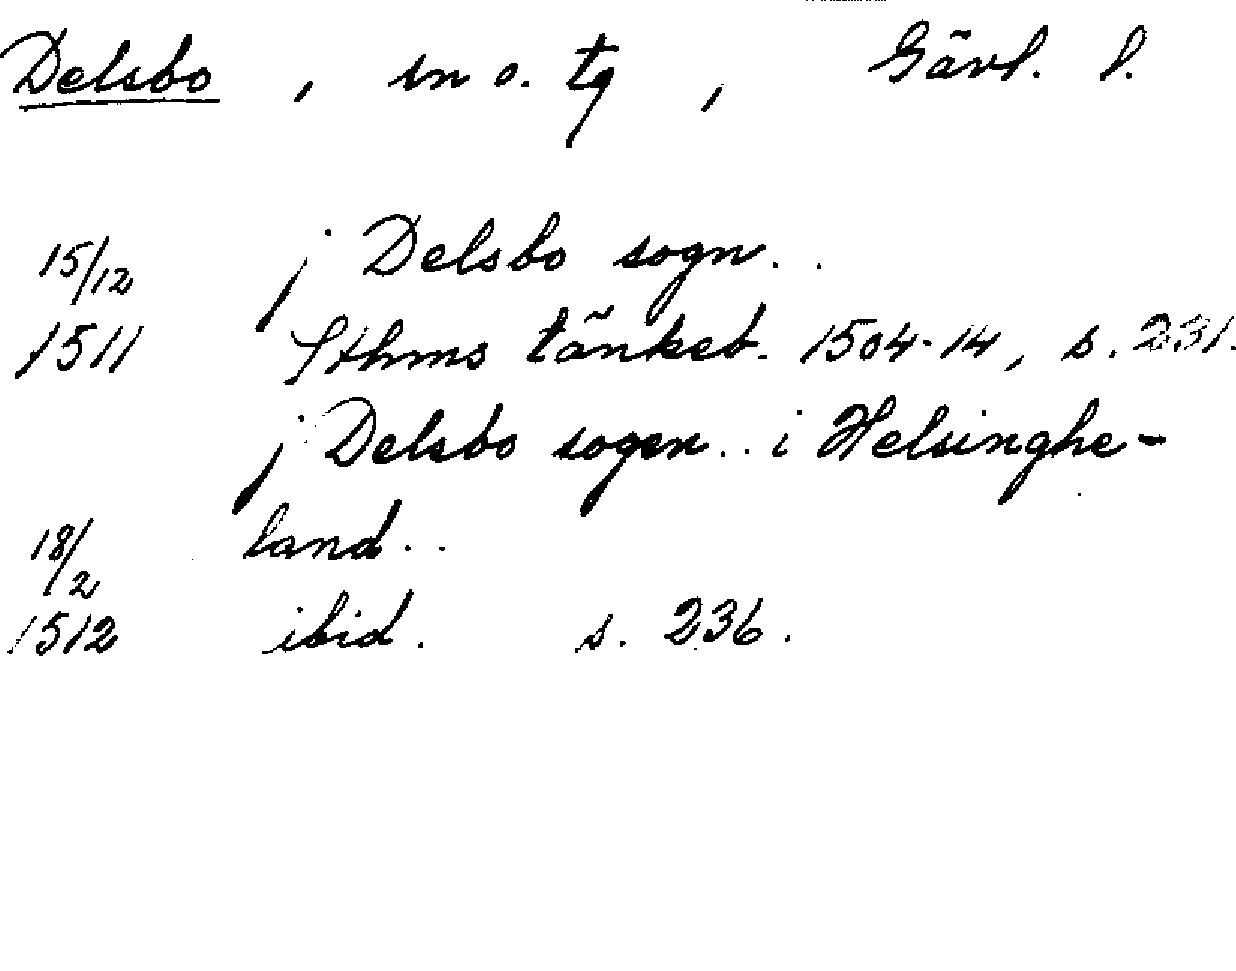 Delsbo, sn o. tg, Gävl. l.
15/12 j Delsbo sogn..
1511 Sthms tänkeb. 1504-14, s. 231.
j Delsbo sogen.. i Helsinghe-
18/2 land..
1512 ibid. s. 236.